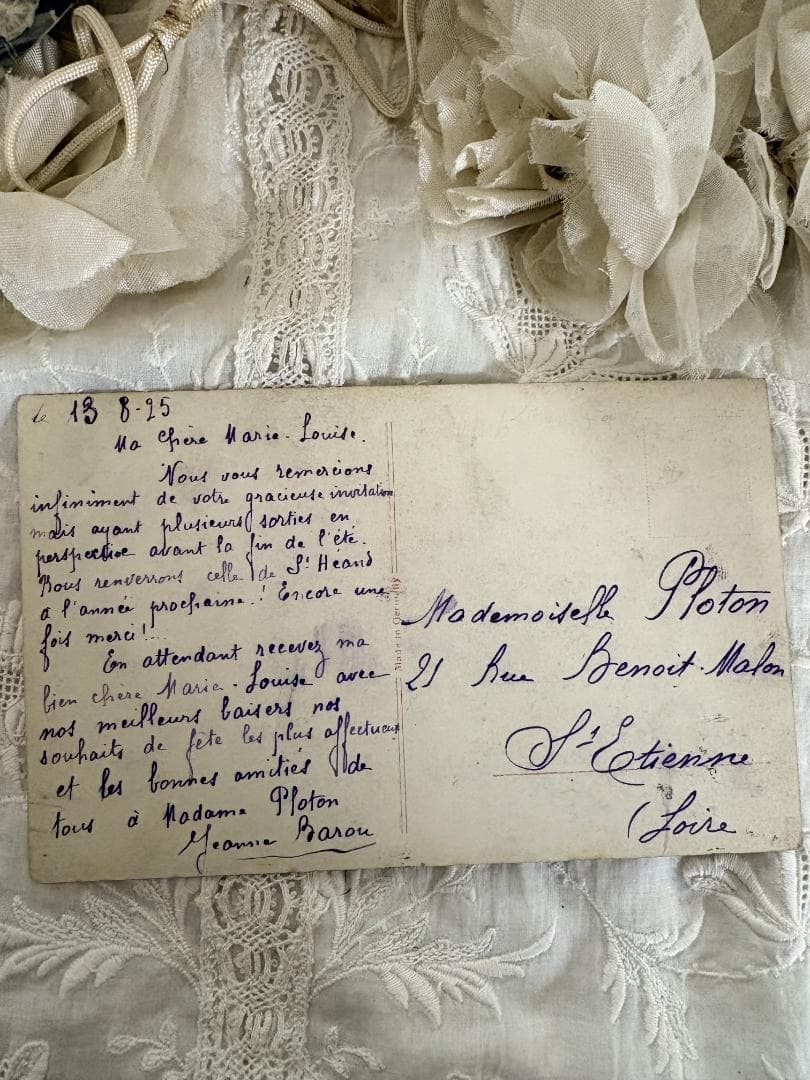 le 13 8-25
Ma chère Marie-Louise.
Nous vous remercions
infiniment de votre gracieuse invitation
mais ayant plusieurs sorties en
perspective avant la fin de l'été.
Nous renverrons celle de St Héand
à l'année prochaine.! Encore une
fois merci!..
En attendant recevez ma
bien chère Marie-Louise avec
nos meilleurs baisers nos
souhaits de fête les plus affectueux
et les bonnes amitiés de
tous à Madame Ploton
Jeanne Barou
Made in Germany
Mademoiselle Ploton
21 Rue Benoit-Malon
St Etienne
(Loire